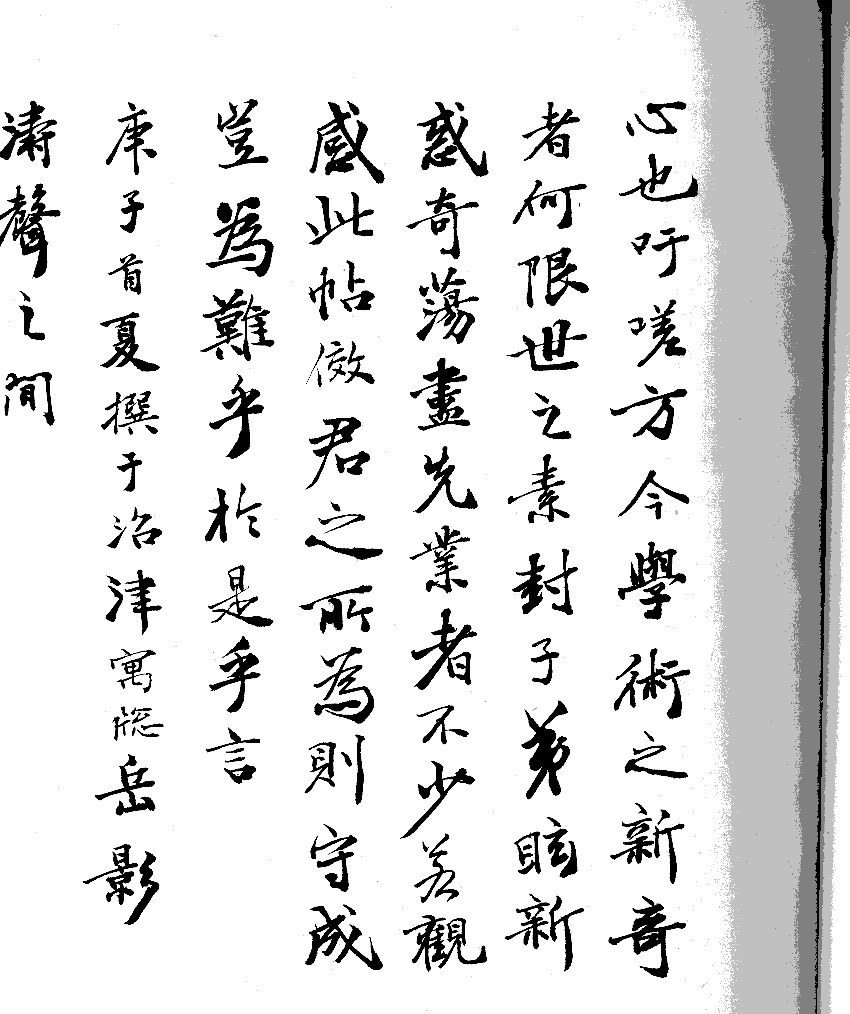 心也吁嗟方今學術之新奇
者何限世之素封子弟眩新
惑奇蕩盡先業者不少若觀
感此帖倣君之所為則守成
豈為難乎於是乎言
庚子首夏撰于沼津寓窓岳影
濤聲之間